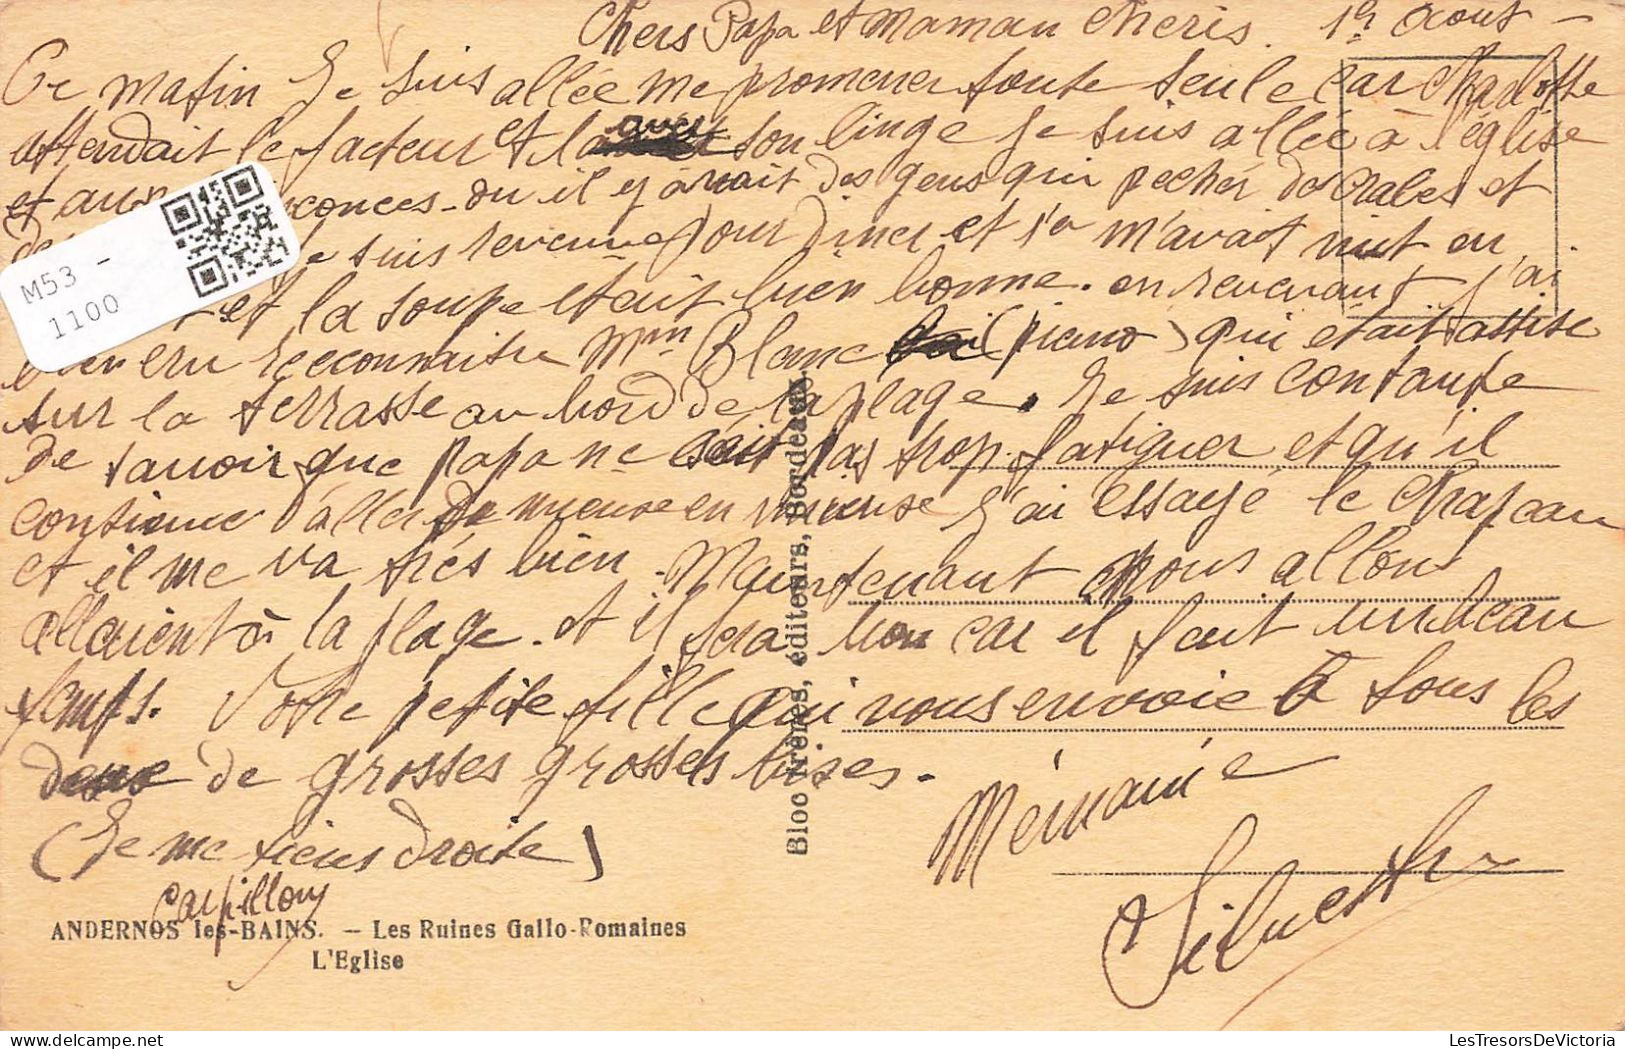 Chers Papa et Maman cheris. 19 Aout -
Ce matin Je suis allée me promener toute seule car Charlotte
attendait le facteur et avec son linge Je suis allée à l'église
et aux conces. ou il y avait des gens qui pecher des crabes et
Je suis revenue pour diner et m'avait mit en
et la soupe etait bien bonne. en revenant j'ai
bien cru reconnaitre Mm Blanc (piano) qui etait assise
sur la terrasse au bord de la plage. Je suis contante
de savoir que papa ne soit pas trop fatiguer et qu'il
continue d'aller de mieuse en mieuse J'ai essayé le chapeau
et il me va très bien. Maintenant nous allons
allaient à la plage. et il fera bon car il fait un beau
temps. Votre petite fille qui vous envoie à tous les
deux de grosses grosses bises.
Mémanie
(Je me tiens droite)
Silvette
Carpillon
ANDERNOS les-BAINS. - Les Ruines Gallo-Romaines
L'Eglise
Bloc frères, éditeurs, Bordeaux.
M53 -
1100
LesTresorsDeVictoria